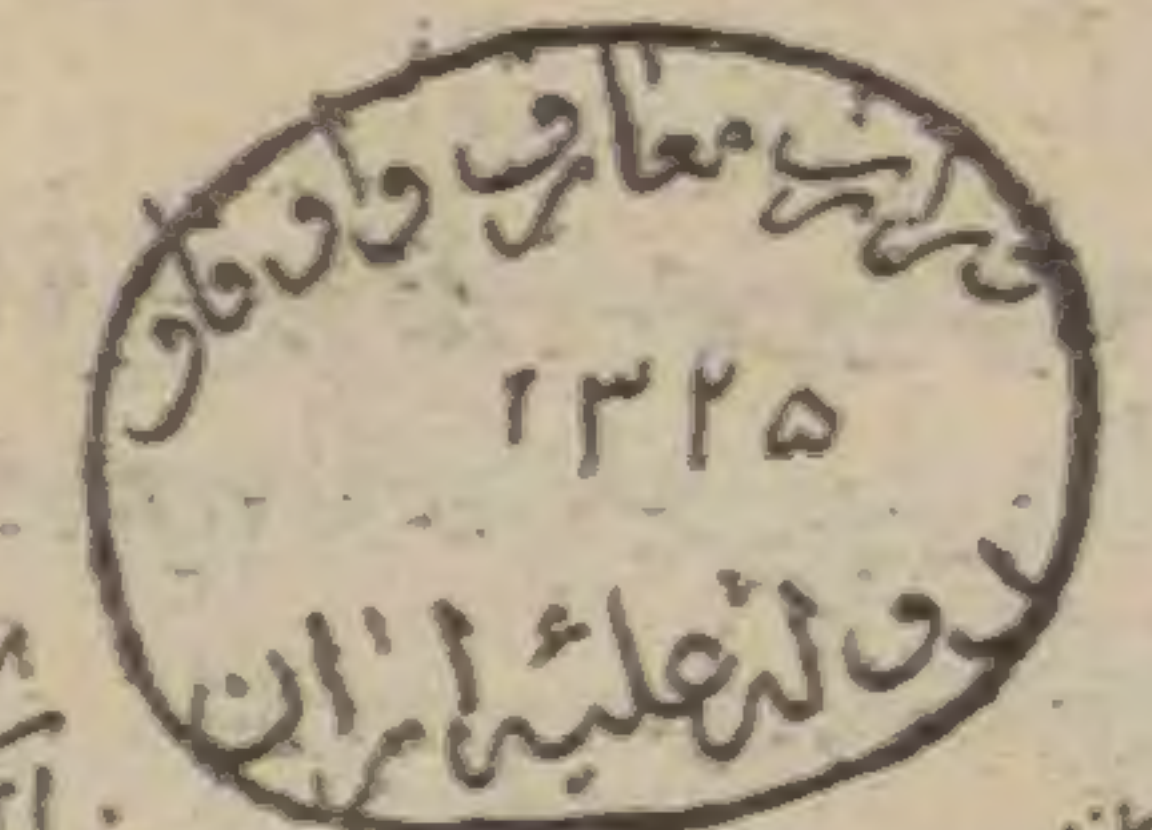 معارف واوقاف
۱۳۲۵
دولة علیهٔ ایران